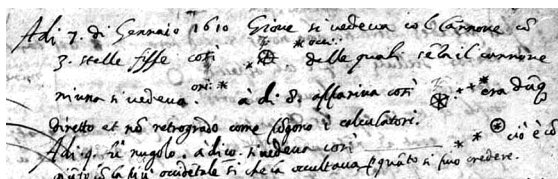 Adi 7. di Gennaio 1610 Giove si vedeva col Cannone cõ
3. stelle fisse così delle quali seza il cannone
niuna si vedeva. à dì 8. appariva così era dũq
diretto et nõ retrogrado come põgono i calculatori.
Adi 9. fù nugolo. à dì 10. si vedeva così cioè cõ
giũto cõ la più occidẽtale sì che la occultava p quãto si può credere.